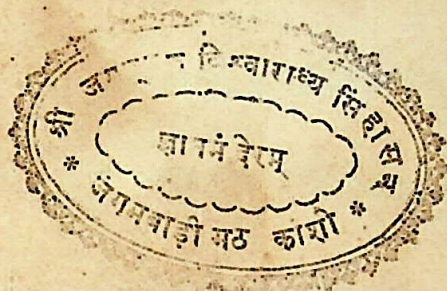 श्री विश्वाराध्य सिंहासन
ज्ञानमंदिरम्
* जंगमवाड़ी मठ काशी *